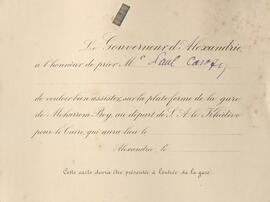 Le Gouverneur d'Alexandrie
a l'honneur de prier Mr Paul
de vouloir bien assister, sur la plateforme de la gare
de Moharrem Bey, au départ de S. A. le Khédive
pour le Caire, qui aura lieu le
Alexandrie, le
Cette carte devra être présentée à l'entrée de la gare.